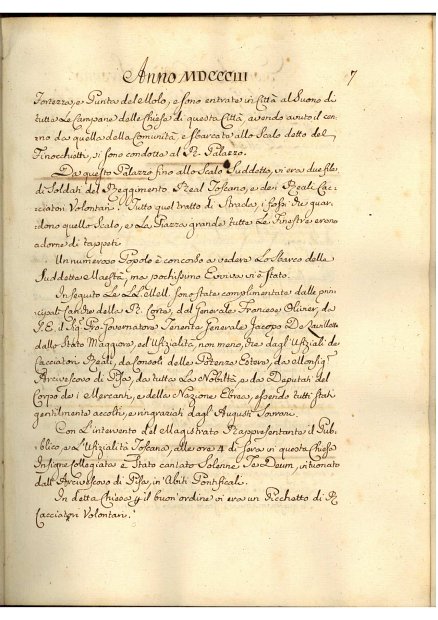 Anno MDCCCIII
7
Fortezza, e Punta del Molo, e sono entrate in Città al Suono di
tutte Le Campane delle Chiese di questa Città, avendo avuto il cen:
no da quella della Comunità, e sbarcate allo Scalo detto del
Finocchietti, si sono condotte al R. Palazzo.
Da questo Palazzo fino allo Scalo Suddetto, vi era due file
di Soldati del Reggimento Real Toscano, e dei Reali Cac:
ciatori Volontari. Tutto quel tratto di Strada, i fossi che guar:
dono quello Scalo, e La Piazza grande tutte Le Finestre erano
adorne di tappeti.
Un numeroso Popolo è concorso a vedere Lo Sbarco della
Suddetta Maestà, ma pochissimi Evviva vi è stato.
In seguito Le LL. MM. sono state complimentate dalle prin:
cipali Cariche della R. Corte, dal Generale Francese Olivier, da
S. E. il Sig. Pro-Governatore Tenente Generale Jacopo De Lavillette
dallo Stato Maggiore, ed Ufizialità, non meno, che dagl'Ufiziali de
Cacciatori Reali, da Consoli delle Potenze Estere, da Monsig.
Arcivescovo di Pisa, da tutta La Nobiltà, e da Deputati del
Corpo dei Mercanti, e della Nazione Ebrea, essendo tutti stati
gentilmente accolti, e ringraziati dagl'Augusti Sovrani.
Con L'intervento del Magistrato Rappresentante il Pub:
blico, e L'Ufizialità Toscana, alle ore 4 di Sera in questa Chiesa
Insigne Collegiata è Stato cantato Solenne Te Deum, intuonato
dall'Arcivescovo di Pisa, in Abiti Pontificali.
In detta Chiesa il buon'ordine vi era un Picchetto di R.
Cacciatori Volontari.